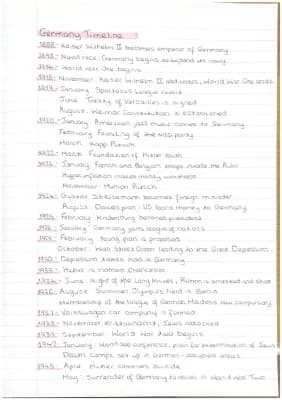 Germany Timeline
1888:- Kaiser Wilhelm II becomes emperor of Germany
1898:- Naval race: Germany begins to expand its navy
1914:- World War One begins
1918:- November: Kaiser Wilhelm II abdicates, World War One ends
1919:- January: Spartacus League revolt
June: Treaty of Versailles is signed
August: Weimar Constitution is established
1920:- January: American jazz music comes to Germany
February: Founding of the Nazi party
March: Kapp Putsch
March: Foundation of Hitler Youth
1923:- January: French and Belgian troops invade the Ruhr
Hyperinflation makes money worthless
November: Munich Putsch
1924:- Gustav Stresemann becomes foreign minister
August: Dawes plan: US loans money to Germany
1925:- February: Hindenburg becomes president
1926:- January: Germany joins league of nations
1929:- February: Young plan is proposed
October: Wall Street Crash leading to the Great Depression
1930:- Depression takes hold in Germany
1933:- Hitler is named Chancellor
1934:- June: Night of the Long Knives, Röhm is arrested and shot
1936:- August: Summer Olympics held in Berlin
Membership of the league of German Maidens now compulsory
1937:- Volkswagen car company is formed
1938:- November: Kristallnacht, Jews attacked
1939:- September: World War Two begins
1942:- January: Wannsee conference, plan for extermination of Jews
Death camps set up in German-occupied areas
1945:- April: Hitler commits suicide
May: Surrender of Germany to allies in World War Two